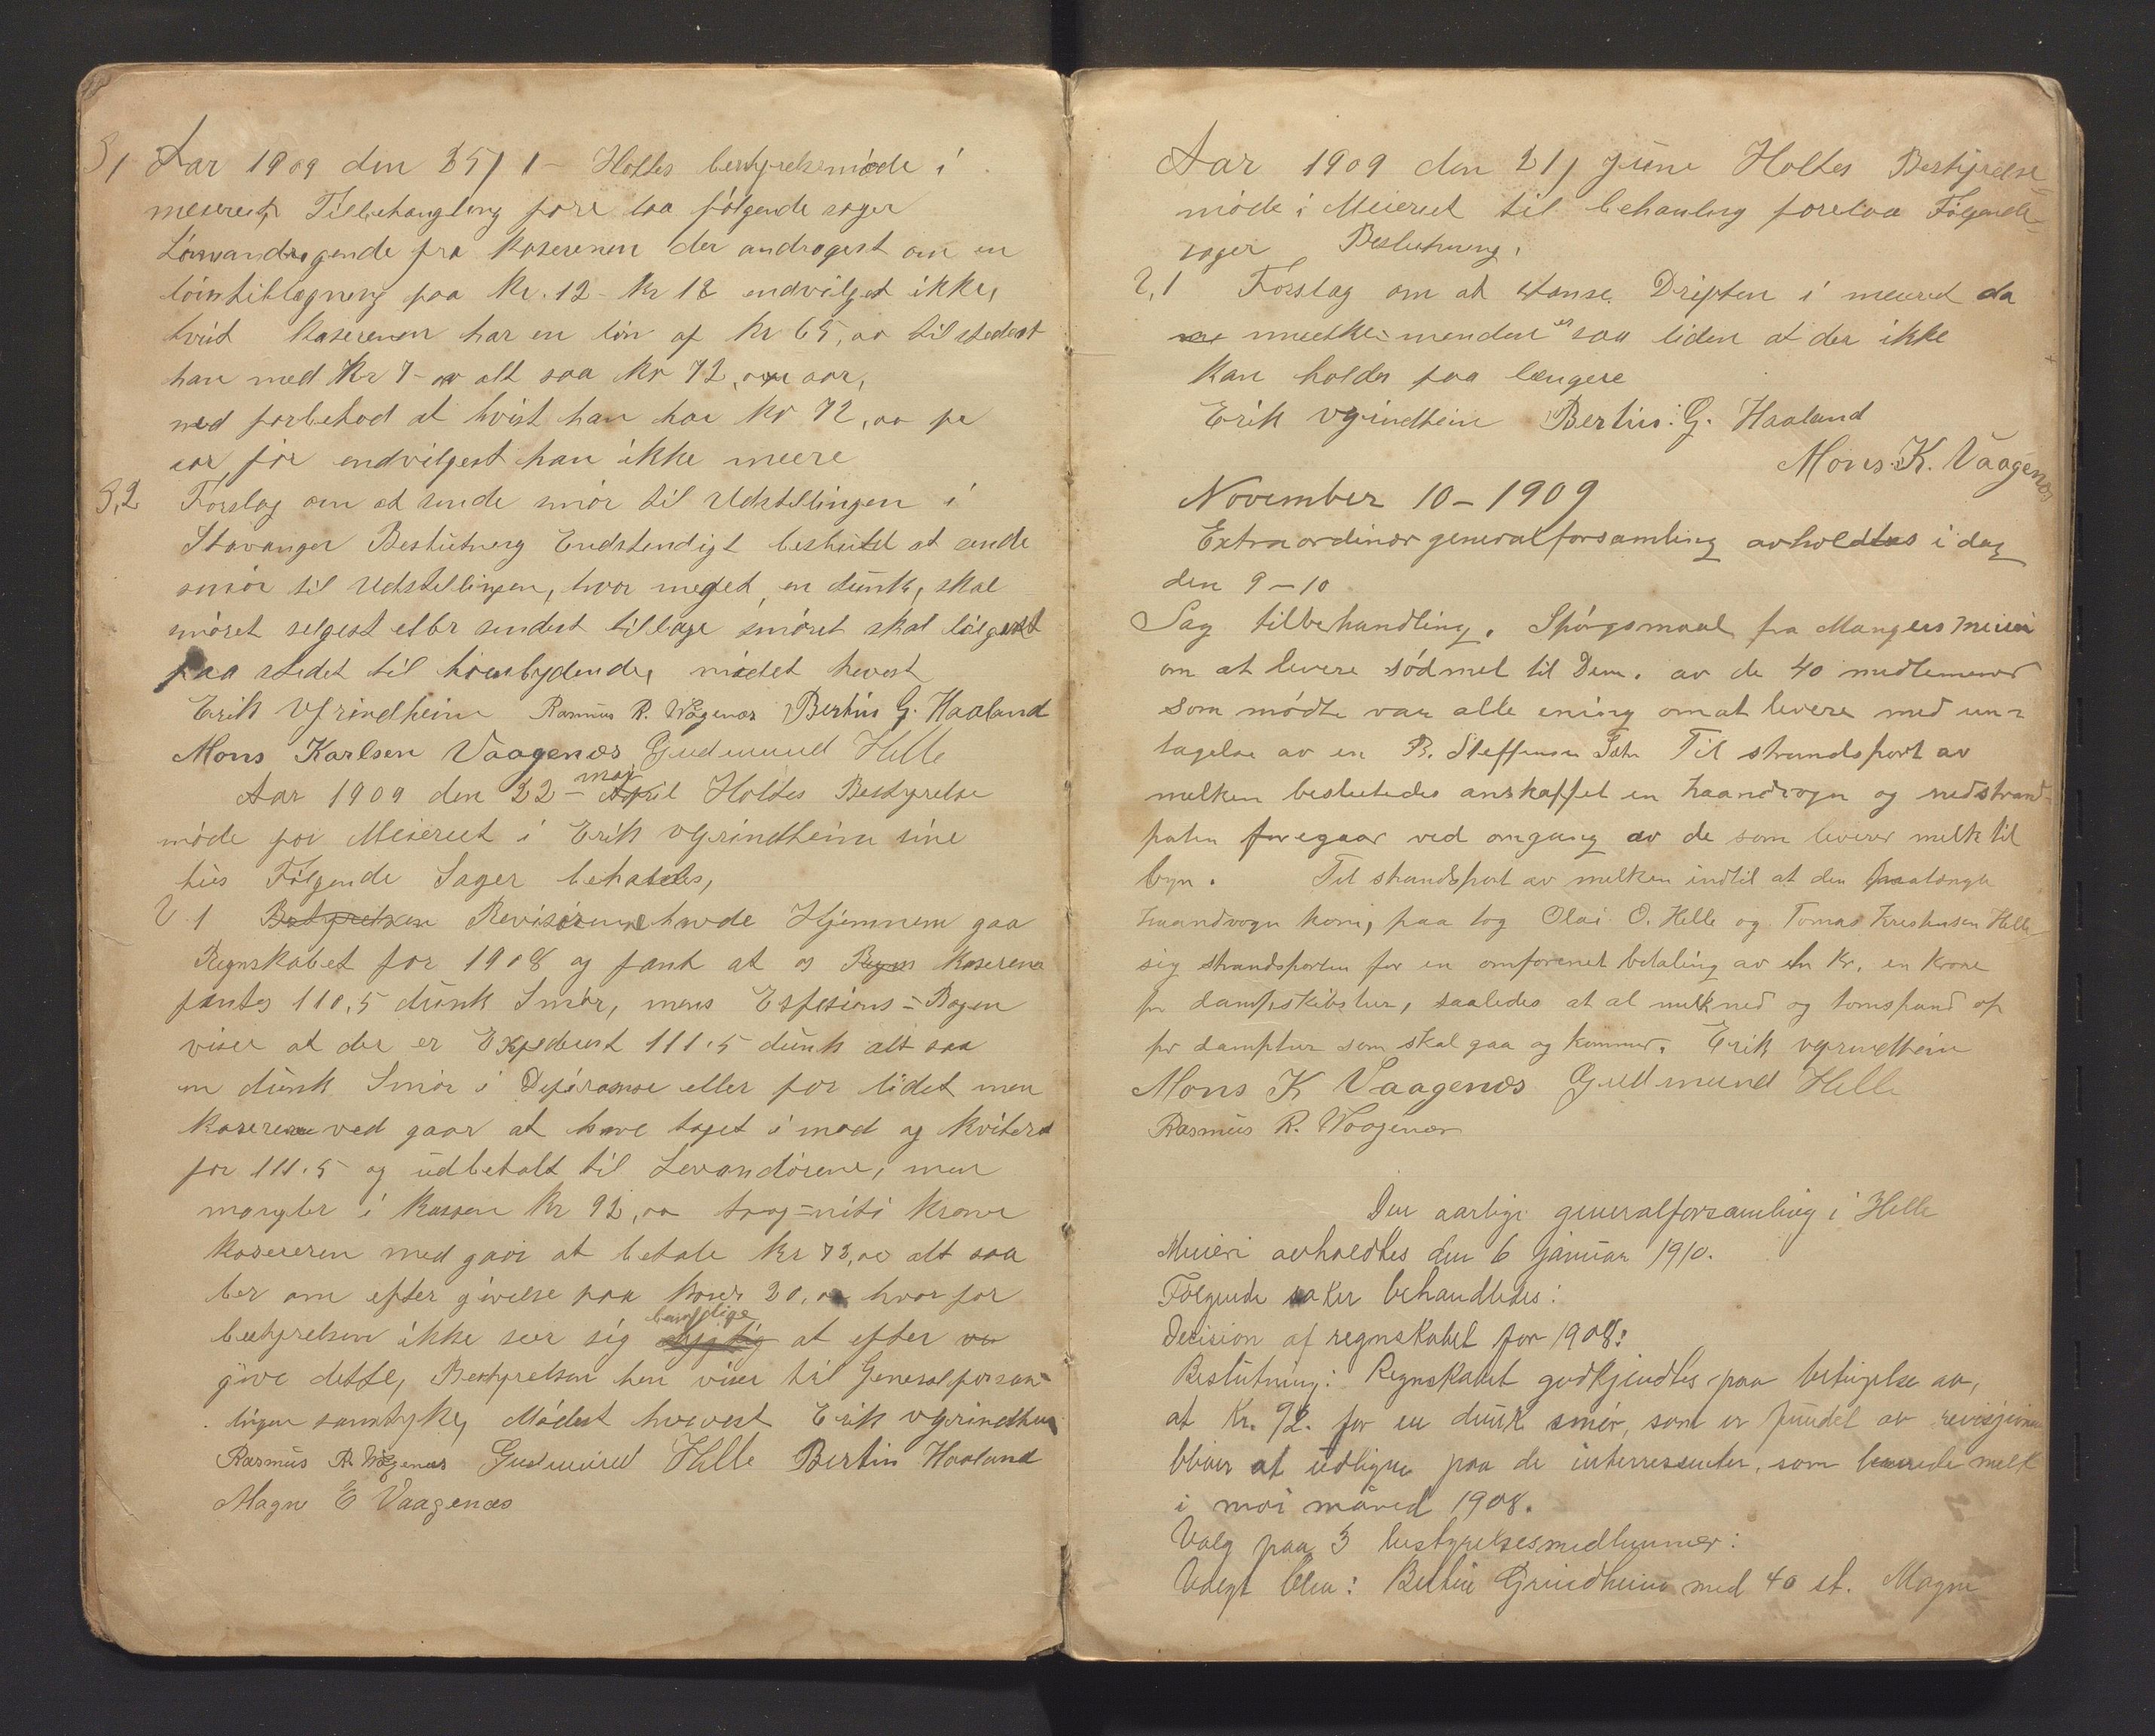 S1 Aar 1909 den 25/1 - Holtes bestyrelsemøde i
meieriet, Tilbehangling fore laa følgende sager
Lønnandragende fra Kasereren der andragest om en
lønstillægning paa Kr. 12 - Kr 18 endvilget ikke,
hvist Kasereren har en løn af Kr 65,00 til stedest
han med Kr 7-00 alt saa Kr 72, aar,
med forbehod at hvist han har Kr 72,00 pr
aar, før endvilgest han ikke meere
S,2 Forslag om at sende smør til Udstillingen i
Stavanger Beslutning Endstendigt besluted at sende
smør til Udstillingen, hvor meged, en dunk, skal
smøret selgest eller sendest tilbage smøret skal selgest
paa stedet til høiestbydende, mødet hevest
Erik Vgrindheim Rasmus R. Wågenæs Bertin G. Haaland
Mons Karlsen Vaagenæs Gudmund Helle
Aar 1909 den 22 - mai April Holtes Bestyrelse
møde for Meieriet i Erik vgrindheim sine
hus Følgende Sager behatles,
S 1 Bestyrelsen Revisorerne havde Hjemnem gaa
Regnskabet for 1908 og fant at os Regn Kaserene
fantes 110,5 dunk Smør, mens Espesions = Bogen
viser at der er Expederet 111.5 dunk alt saa
en dunk Smør i Deferanse eller for lidet men
Kasereren ved gaar at have taget i mod og kviteret
for 111.5 og udbetalt til Levandørene, men
mangler i Kassen Kr 92,00 toog=niti Kroner
Kasereren med gaar at betale Kr 73,00 alt saa
ber om efter givelse paa Kroner 20,00 hvor for
bestyrelsen ikke seer sig bemyndige at efter
give dette, Bestyrelsen hen viser til Generalforsam-
lingen samtyke, Mødest hvevest Erik vgrindheim
Rasmus R. Wågenæs Gudmund Helle Bertin Haaland
Magne E Vaagenæs
Aar 1909 den 21/ June Holtes Bestyrelse=
møde i Meieriet til behanling forelaa Følgende=
sager Beslutning.
S,1 Forslag om at stanse Driften i meieriet da
melke mengden er saa liden at der ikke
kan holdes paa længere
Erik vgrindheim Bertin G. Haaland
Mons K. Vaagenæs
November 10 - 1909
Extraordinær generalforsamling avholdtes i dag
den 9 - 10
Sag tilbehandling. Spørgsmaal fra Mangers meieri
om at levere sødmel til Dem. av de 40 medlemmer
som mødte var alle ening om at levere med un=
tagelse av en B. Steffensen Til strandsport av
melken besluttedes anskaffet en haandvogn og nedstrand=
paten foregaar ved omgang av de som leverer melk til
byn. Til strandsport av melken indtil at den paatængte
haandvogn kom, paa tog Olai O. Helle og Tomas Kristensen Helle
sig strandsporten for en omforenet betaling av en Kr. en Krone
pr dampskibstur, saaledes at al melk ned og tomspand op
pr damptur som skal gaa og kommer. Erik vgrindheim
Mons K Vaagenæs Gudmund Helle
Rasmus R. Waagenæs
Den aarlige generalforsamling i Helle
Meieri avholdtes den 6 januar 1910.
Følgende saker behandledes:
Decision af regnskabet for 1908:
Beslutning: Regnskabet godkjendtes paa betingelse av,
at Kr. 92. for en dunk smør, som er fundet av revisjonen
bliver at udligne paa de interressenter, som leverede melk
i mai måned 1908.
Valg paa 3 bestyrelsesmedlemmer:
Valgt blev: Bertin Grindheim med 40 st. Magne